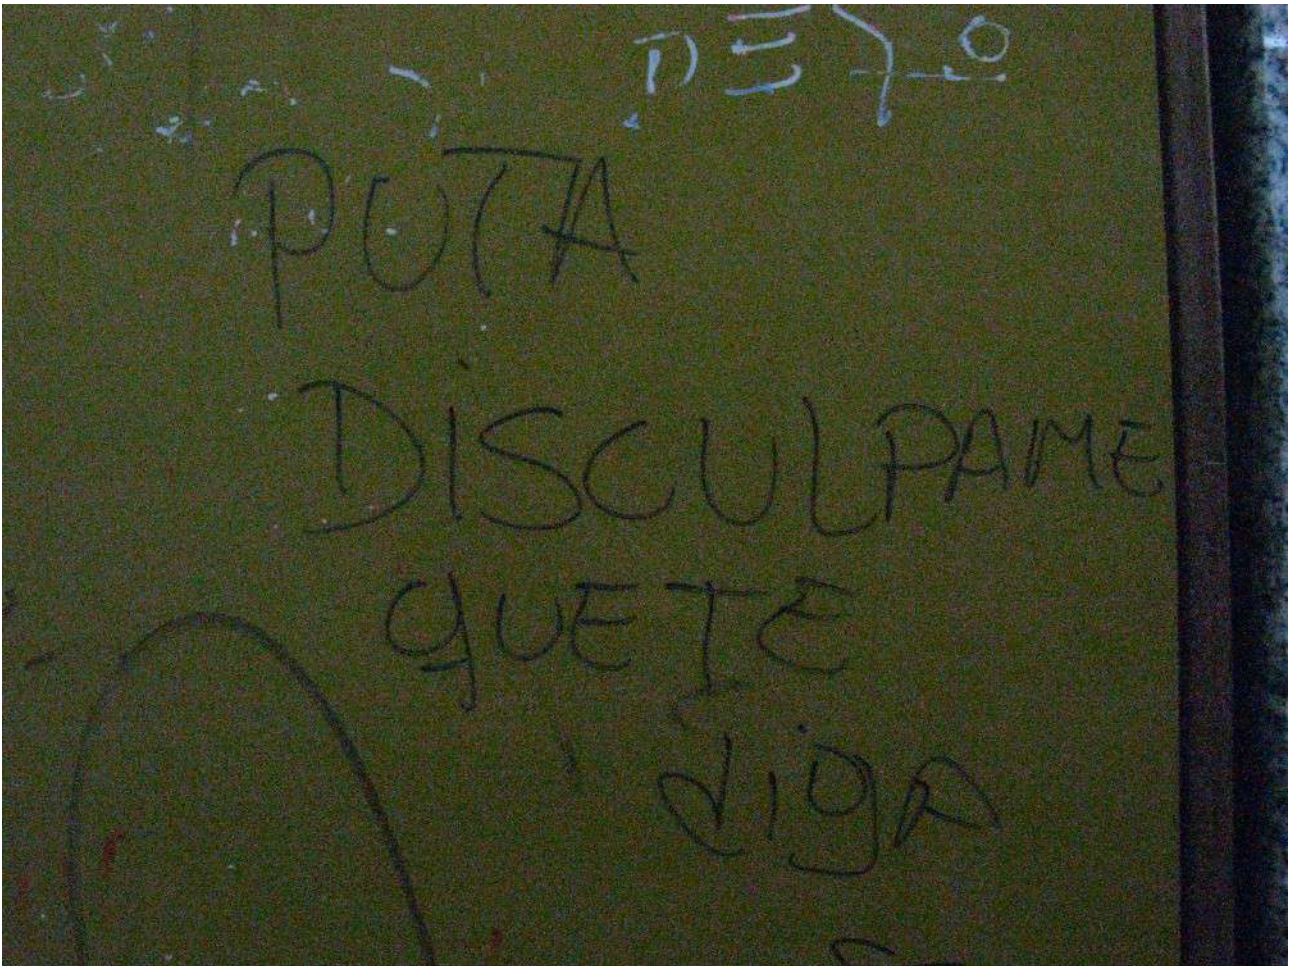 PUTA
DISCULPAME
qUE TE
diga